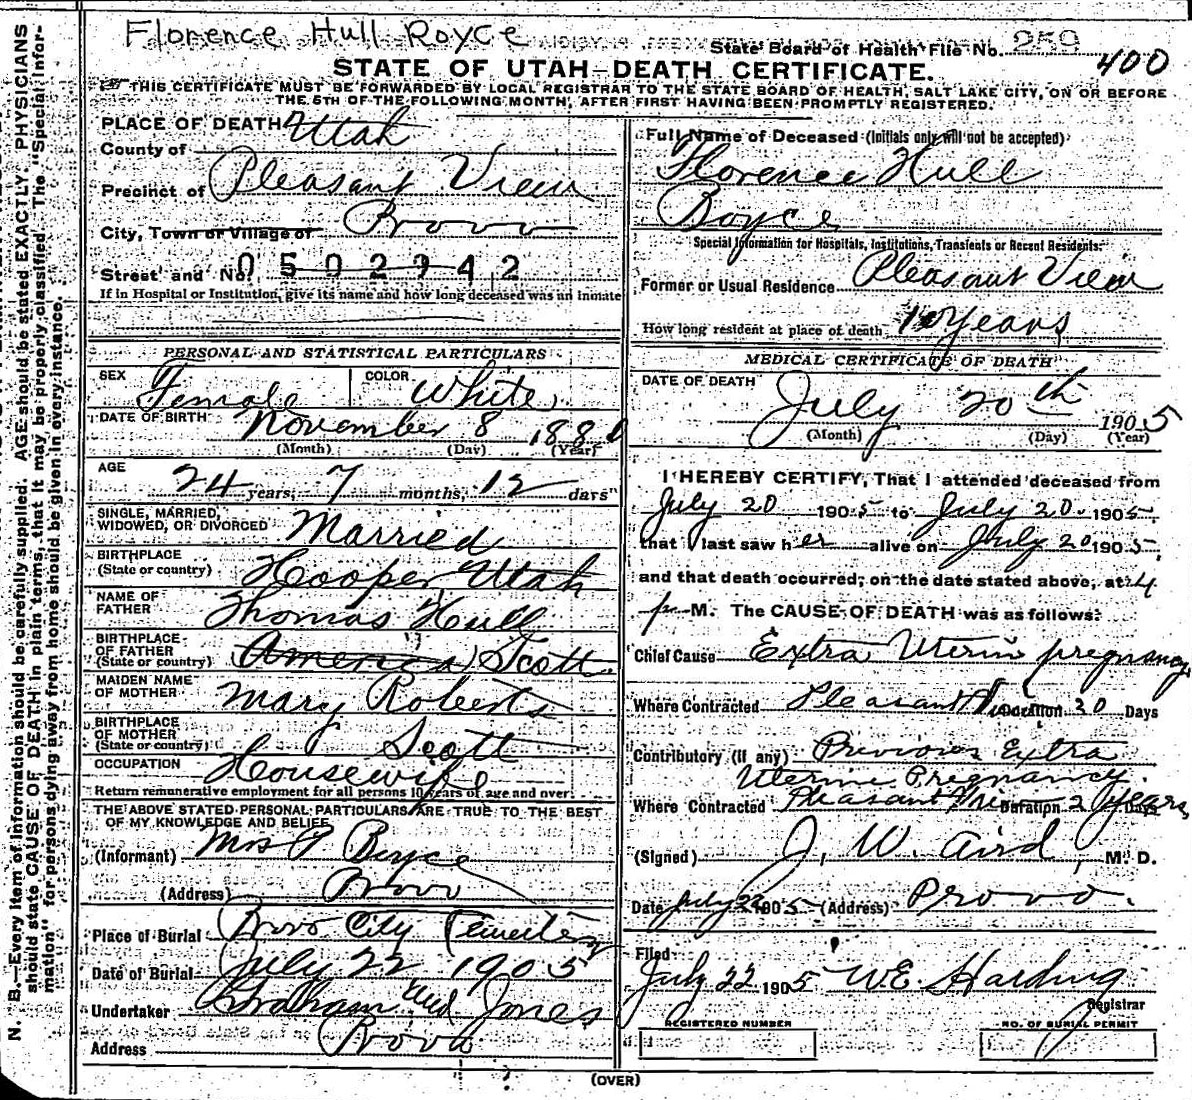 Florence Hull Royce
State Board of Health File No. 259
400
STATE OF UTAH—DEATH CERTIFICATE.
THIS CERTIFICATE MUST BE FORWARDED BY LOCAL REGISTRAR TO THE STATE BOARD OF HEALTH, SALT LAKE CITY, ON OR BEFORE
THE 5TH OF THE FOLLOWING MONTH, AFTER FIRST HAVING BEEN PROMPTLY REGISTERED.
PLACE OF DEATH
County of Utah
Precinct of Pleasant View
City, Town or Village of Provo
Street and No. 0502942
If in Hospital or Institution, give its name and how long deceased was an inmate
PERSONAL AND STATISTICAL PARTICULARS
SEX Female COLOR White
DATE OF BIRTH November 8 1880
(Month) (Day) (Year)
AGE
24 years, 7 months, 12 days
SINGLE, MARRIED,
WIDOWED, OR DIVORCED Married
BIRTHPLACE
(State or country) Hooper Utah
NAME OF
FATHER Thomas Hull
BIRTHPLACE
OF FATHER
(State or country) America Scott
MAIDEN NAME
OF MOTHER Mary Roberts
BIRTHPLACE
OF MOTHER
(State or country) Scott
OCCUPATION Housewife
Return remunerative employment for all persons 10 years of age and over
THE ABOVE STATED PERSONAL PARTICULARS ARE TRUE TO THE BEST
OF MY KNOWLEDGE AND BELIEF
(Informant) Mrs P Boyce
(Address) Provo
Place of Burial Provo City Cemetery
Date of Burial July 22 1905
Undertaker Graham and Jones
Address Provo
Full Name of Deceased (Initials only will not be accepted)
Florence Hull
Boyce
Special Information for Hospitals, Institutions, Transients or Recent Residents:
Former or Usual Residence Pleasant View
How long resident at place of death 10 Years
MEDICAL CERTIFICATE OF DEATH
DATE OF DEATH
July 20th 1905
(Month) (Day) (Year)
I HEREBY CERTIFY, That I attended deceased from
July 20 1905 to July 20 1905
that I last saw her alive on July 20 1905,
and that death occurred, on the date stated above, at 4
p M. The CAUSE OF DEATH was as follows:
Chief Cause Extra Uterin pregnancy
Where Contracted Pleasant V Duration 20 Days
Contributory (if any) Previous Extra
Uterine Pregnancy.
Where Contracted Pleasant View Duration 2 years Days
(Signed) J. W. Aird, M. D.
Date July 22 1905 (Address) Provo.
Filed
July 22 1905 W.E. Harding
Registrar
REGISTERED NUMBER
NO. OF BURIAL PERMIT
(OVER)
N. B.—Every item of information should be carefully supplied. AGE should be stated EXACTLY. PHYSICIANS
should state CAUSE OF DEATH in plain terms, that it may be properly classified. The "Special Infor-
mation" for persons dying away from home should be given in every instance.